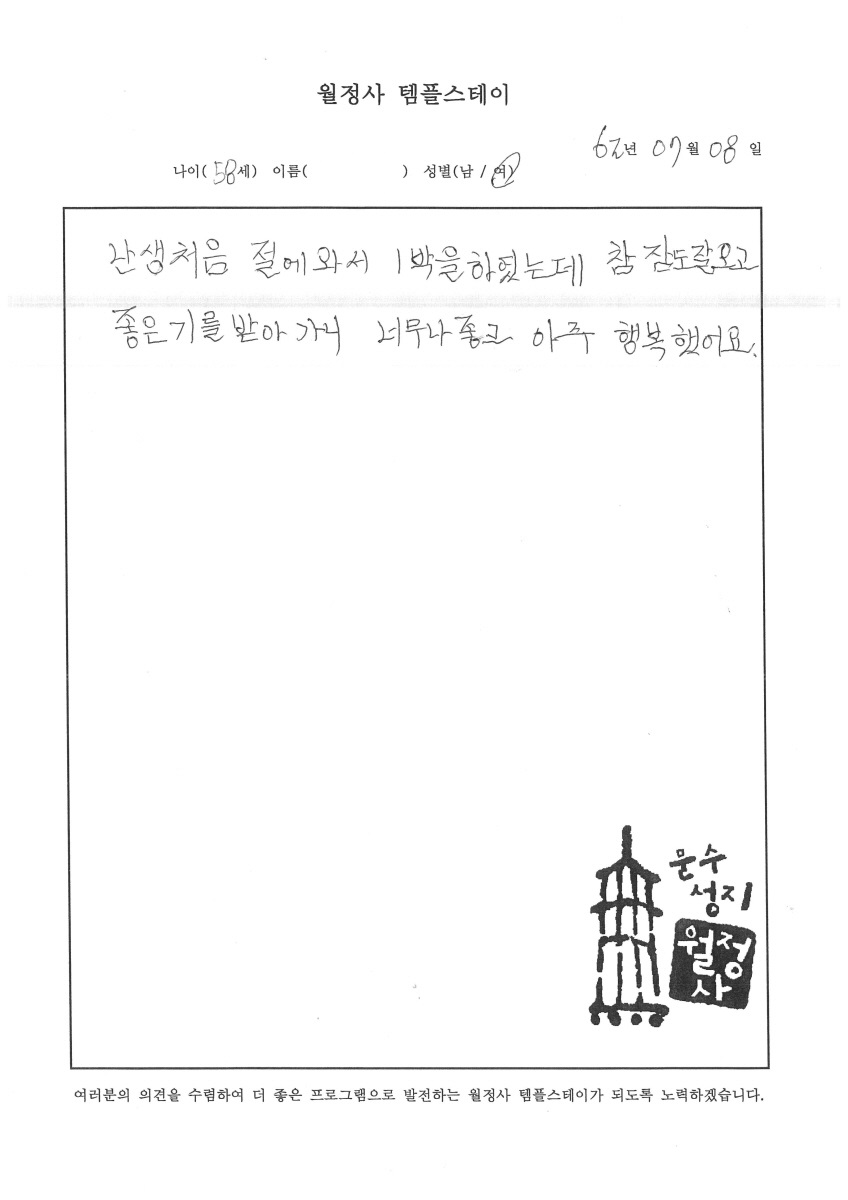 월정사 템플스테이
62년 07월 08일
나이(58세) 이름( ) 성별(남 / 여)
난생처음 절에와서 1박을하였는데 참 잔도랄오고
좋은기를 받아 가니 너무나 좋고 아주 행복했어요.
문수
성지
월정
사
여러분의 의견을 수렴하여 더 좋은 프로그램으로 발전하는 월정사 템플스테이가 되도록 노력하겠습니다.